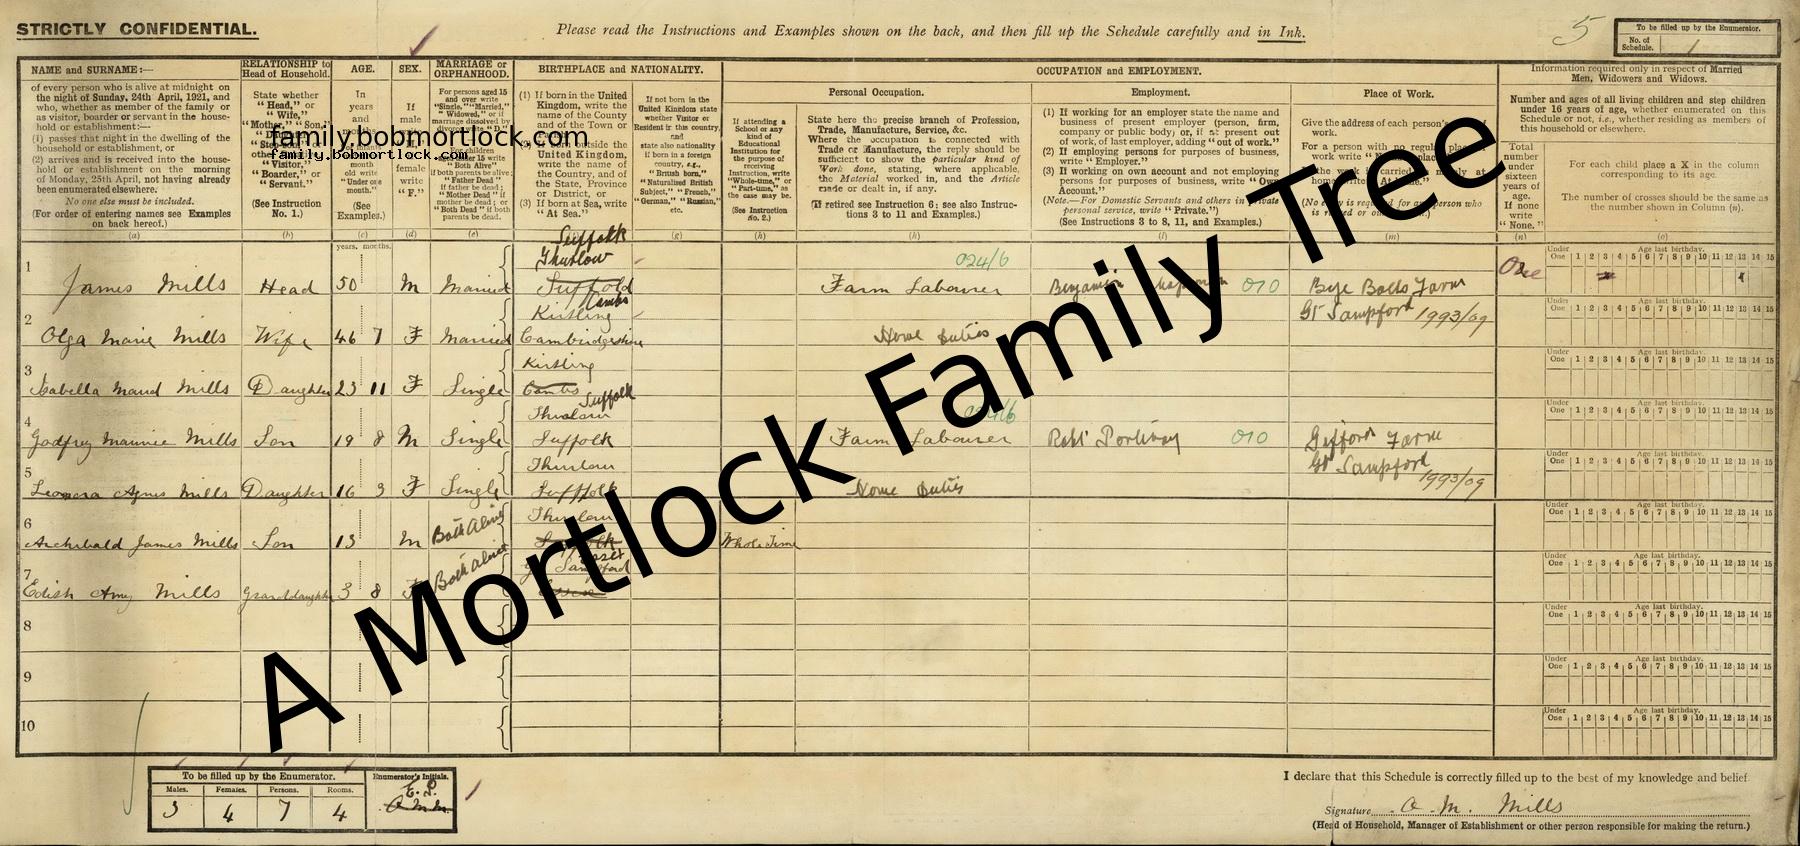 STRICTLY CONFIDENTIAL.
Please read the Instructions and Examples shown on the back, and then fill up the Schedule carefully and in Ink.
5
To be filled up by the Enumerator.
No. of Schedule. 1
NAME and SURNAME:—
of every person who is alive at midnight on
the night of Sunday, 24th April, 1921, and
who, whether as member of the family or
as visitor, boarder or servant in the house-
hold or establishment:—
(1) passes that night in the dwelling of the
household or establishment, or
(2) arrives and is received into the house-
hold or establishment on the morning
of Monday, 25th April, not having already
been enumerated elsewhere.
No one else must be included.
(For order of entering names see Examples
on back hereof.)
(a)
RELATIONSHIP to
Head of Household.
State whether
"Head," or
"Wife,"
"Mother," "Son,"
"Visitor,"
"Boarder," or
"Servant."
(See Instruction
No. 1.)
(b)
AGE.
In
years
and
(See
Examples.)
(c)
years. months.
SEX.
If
male
write
female
write
"F."
(d)
MARRIAGE or
ORPHANHOOD.
For persons aged 15
and over write
"Single," "Married,"
"Widowed," or if
marriage dissolved by
"Both Alive"
if both parents be alive;
"Father Dead"
if father be dead;
"Mother Dead" if
mother be dead; or
"Both Dead" if both
parents be dead.
(e)
BIRTHPLACE and NATIONALITY.
(1) If born in the United
Kingdom, write the
name of the County
and of the Town or
outside the
United Kingdom,
write the name of
the Country, and of
the State, Province
or District, or
(3) If born at Sea, write
"At Sea."
If not born in the
United Kingdom state
whether Visitor or
Resident in this country,
and
state also nationality
if born in a foreign
country, e.g.,
"British born,"
"Naturalised British
Subject," "French,"
"German," "Russian,"
etc.
(g)
OCCUPATION and EMPLOYMENT.
If attending a
School or any
kind of
Educational
Institution for
the purpose of
receiving
Instruction, write
"Whole-time," or
"Part-time," as
the case may be.
(See Instruction
No. 2.)
(h)
Personal Occupation.
State here the precise branch of Profession,
Trade, Manufacture, Service, &c.
Where the occupation is connected with
Trade or Manufacture, the reply should be
sufficient to show the particular kind of
Work done, stating, where applicable,
the Material worked in, and the Article
made or dealt in, if any.
(If retired see Instruction 6; see also Instruc-
tions 3 to 11 and Examples.)
Employment.
(1) If working for an employer state the name and
business of present employer (person, firm,
company or public body) or, if at present out
of work, of last employer, adding "out of work."
(2) If employing persons for purposes of business,
write "Employer."
(3) If working on own account and not employing
persons for purposes of business, write "Own
Account."
(Note.—For Domestic Servants and others in private
personal service, write "Private.")
(See Instructions 3 to 8, 11, and Examples.)
(l)
Place of Work.
Give the address of each person's place of
work.
For a person with no regular place of
(m)
Information required only in respect of Married
Men, Widowers and Widows.
Number and ages of all living children and step children
under 16 years of age, whether enumerated on this
Schedule or not, i.e., whether residing as members of
this household or elsewhere.
Total
number
under
sixteen
years of
age.
If none
write
"None."
(n)
For each child place a X in the column
corresponding to its age.
The number of crosses should be the same as
the number shown in Column (n).
(o)
family.bobmortlock.com
family.bobmortlock.com
A Mortlock Family Tree
Under One Age last birthday. 1 2 3 4 5 6 7 8 9 10 11 12 13 14 15
1 James Mills Head 50 M Married Suffolk Thurlow Suffolk Farm Labourer 024/6 Benjamin 010 Bye Balls Farm Gt Sampford 1993/09 One
2 Olga Marie Mills Wife 46 7 F Married Kirtling Cambs Cambridgeshire Home Duties
3 Isabella Maud Mills Daughter 23 11 F Single Kirtling Cambs
4 Godfrey Maurice Mills Son 19 8 M Single Thurlow Suffolk Suffolk Farm Labourer 024/6 Robt Portway 010 Gifford Farm Gt Sampford 1993/09
5 Leonora Agnes Mills Daughter 16 3 F Single Thurlow Suffolk Home Duties
6 Archibald James Mills Son 13 M Both Alive Thurlow Suffolk Whole Time
7 Edith Amy Mills Granddaughter 3 8 F Both alive Gt Sampford Essex
8
9
10
To be filled up by the Enumerator.
Males. Females. Persons. Rooms.
3 4 7 4
Enumerator's Initials.
E. P.
I declare that this Schedule is correctly filled up to the best of my knowledge and belief
Signature O. M. Mills
(Head of Household, Manager of Establishment or other person responsible for making the return.)